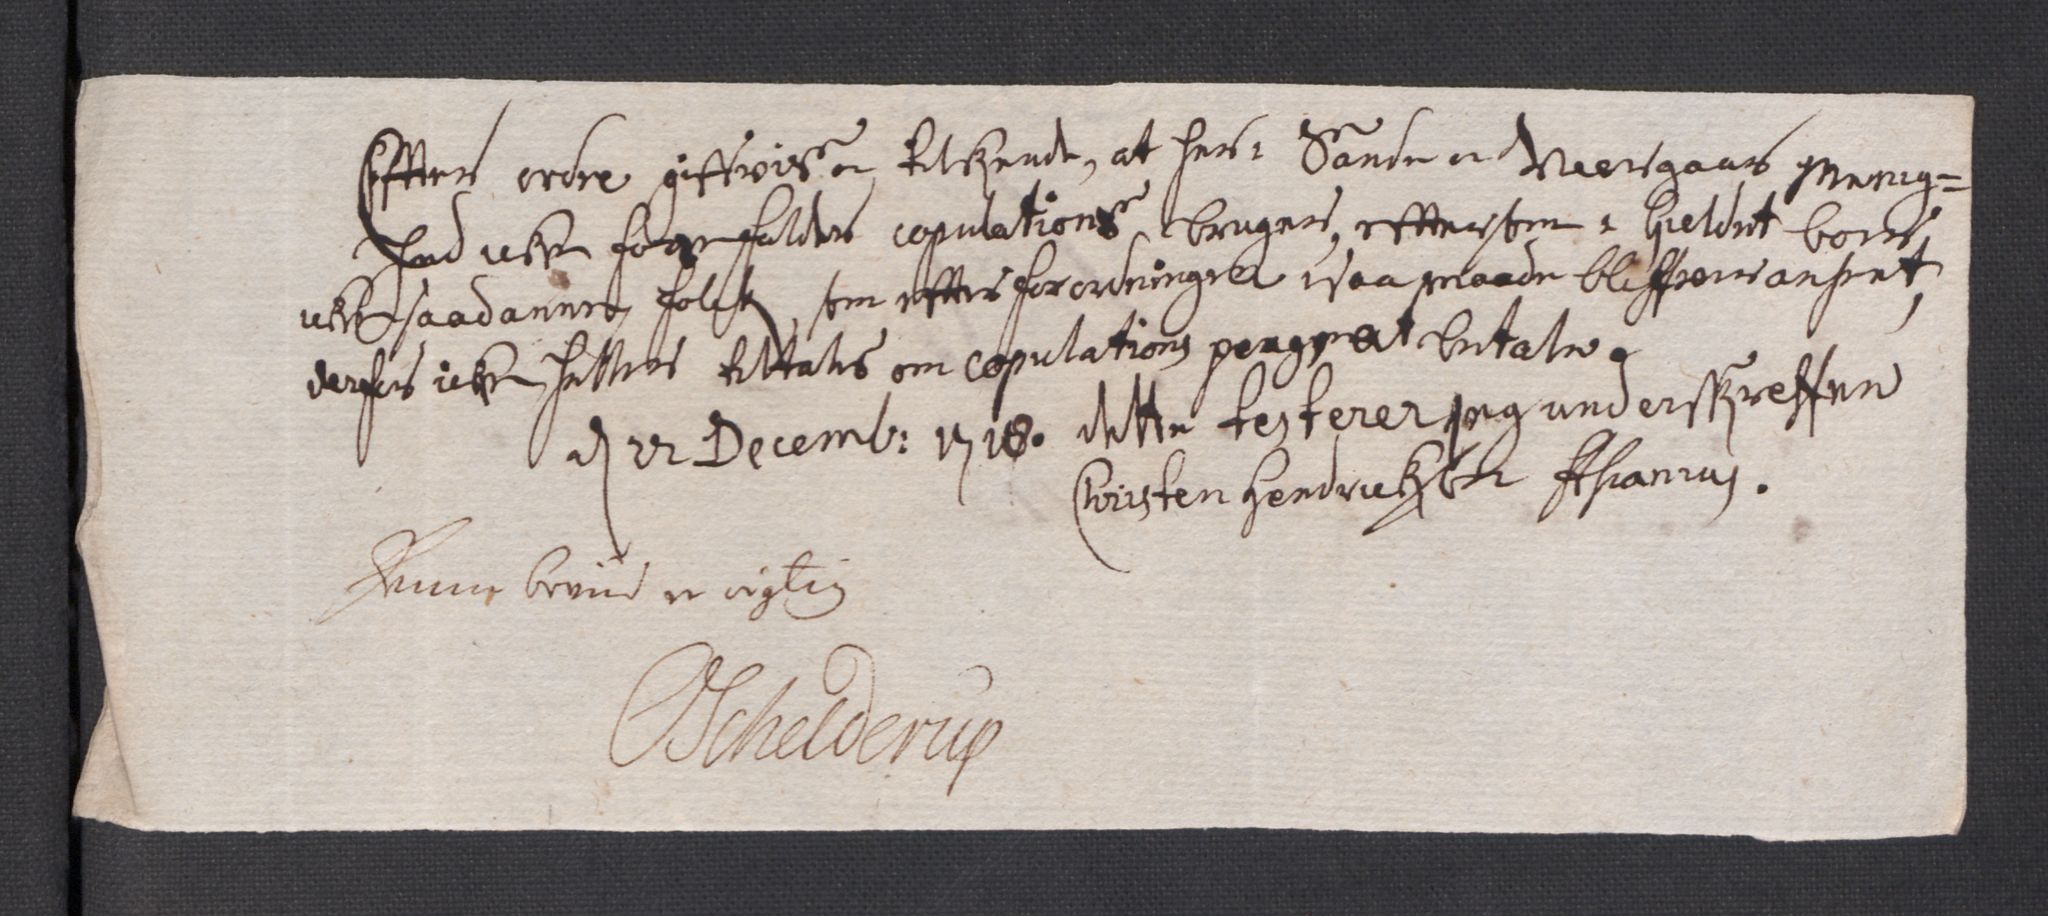 Efter ordre giffvis tilkende, at her i Sande og Weersgaars Menig=
hed icke forrefalder copulations brugere, effterssom i heldet boer
icke saadanne folck, som effter forordningen i saa maade bliffver anseet,
derfor icke heller tiltalis om copulations penge at betale.
d 22 Decemb: 1718. dette testerer jeg underskreffen
Christen Hendricksøn
Denne beviis er rigtig
Schelderup